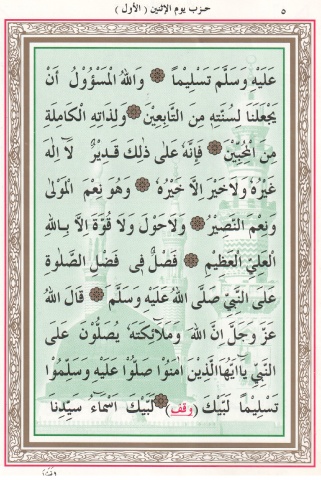 حزب يوم الإثنين (الأول) ٥
عَلَيْهِ وَسَلَّمَ تَسْلِيمًا وَاللهُ الْمَسْؤُولُ اَنْ
يَجْعَلَنَا لِسُنَّتِهِ مِنَ التَّابِعِينَ وَلِذَاتِهِ الْكَامِلَةِ
مِنَ الْمُحِبِّينَ فَاِنَّهُ عَلٰى ذٰلِكَ قَدِيرٌ لَا اِلٰهَ
غَيْرُهُ وَلَاخَيْرَ اِلَّا خَيْرُهُ وَهُوَ نِعْمَ الْمَوْلٰى
وَنِعْمَ النَّصِيرُ وَلَاحَوْلَ وَلَا قُوَّةَ اِلَّا بِاللهِ
الْعَلِيِّ الْعَظِيمِ فَصْلٌ فِى فَضْلِ الصَّلٰوةِ
عَلَى النَّبِيِّ صَلَّى اللهُ عَلَيْهِ وَسَلَّمَ قَالَ اللهُ
عَزَّ وَجَلَّ اِنَّ اللهَ وَمَلٰٓئِكَتَهُ يُصَلُّوْنَ عَلَى
النَّبِيِّ يَٓا اَيُّهَا الَّذِينَ اٰمَنُوْا صَلُّوا عَلَيْهِ وَسَلِّمُوْا
تَسْلِيمًا لَبَّيْكَ (وقف) لَبَّيْكَ اَسْمَٓاءُ سَيِّدِنَا